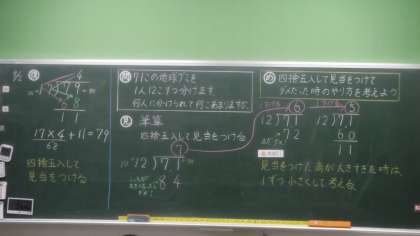 4
17)79
68
11
17×4+11=79
68
四捨五入して
見当をつける
問 71この地球グミを
1人12こずつ分けます
何人に分けられて何こあまりますか。
見 筆算
四捨五入して見当をつける
7
12)71
84
め 四捨五入して見当をつけて
ダメだった時のやり方を考えよう
6
12)71
72
5
12)71
60
11
見当をつけた商が大きすぎた時は
1ずつ小さくして考える